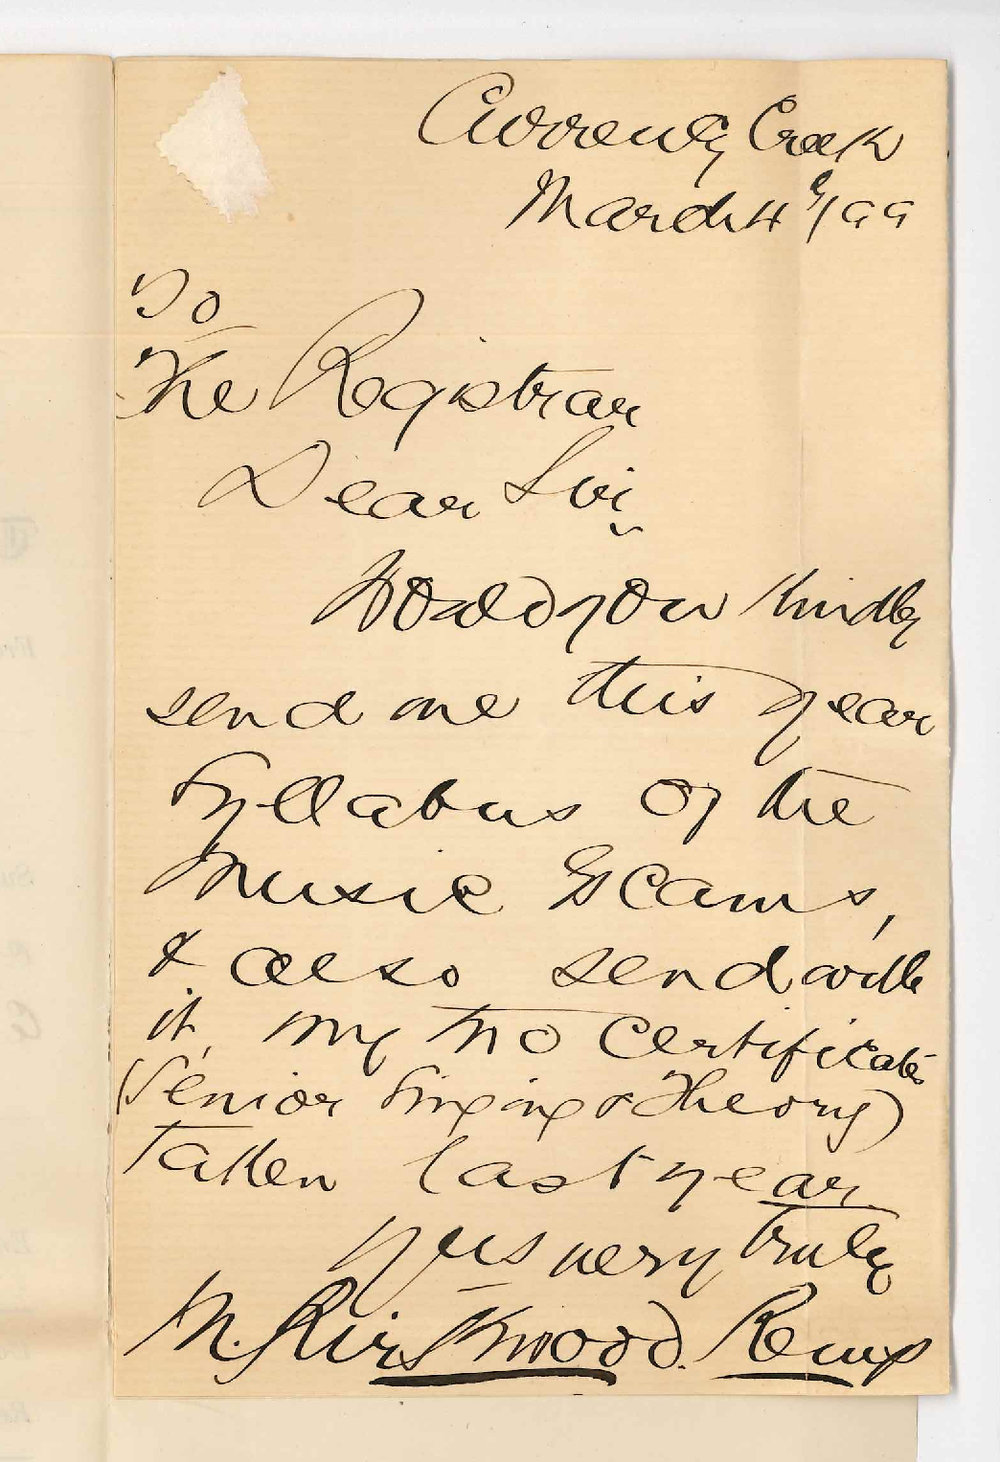 Currency Creek
March 4th/99
To
The Registrar
Dear Sir,
Would you kindly
send me this year
Syllabus of the
Music Exams,
& also send with
it, my two certificates
(Senior Singing & Theory)
taken last year
yrs very truly
M. Kirkwood. Kemp